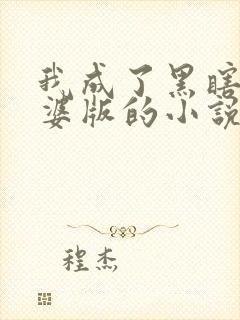 我成了黑瞎
婆版的小説
程杰